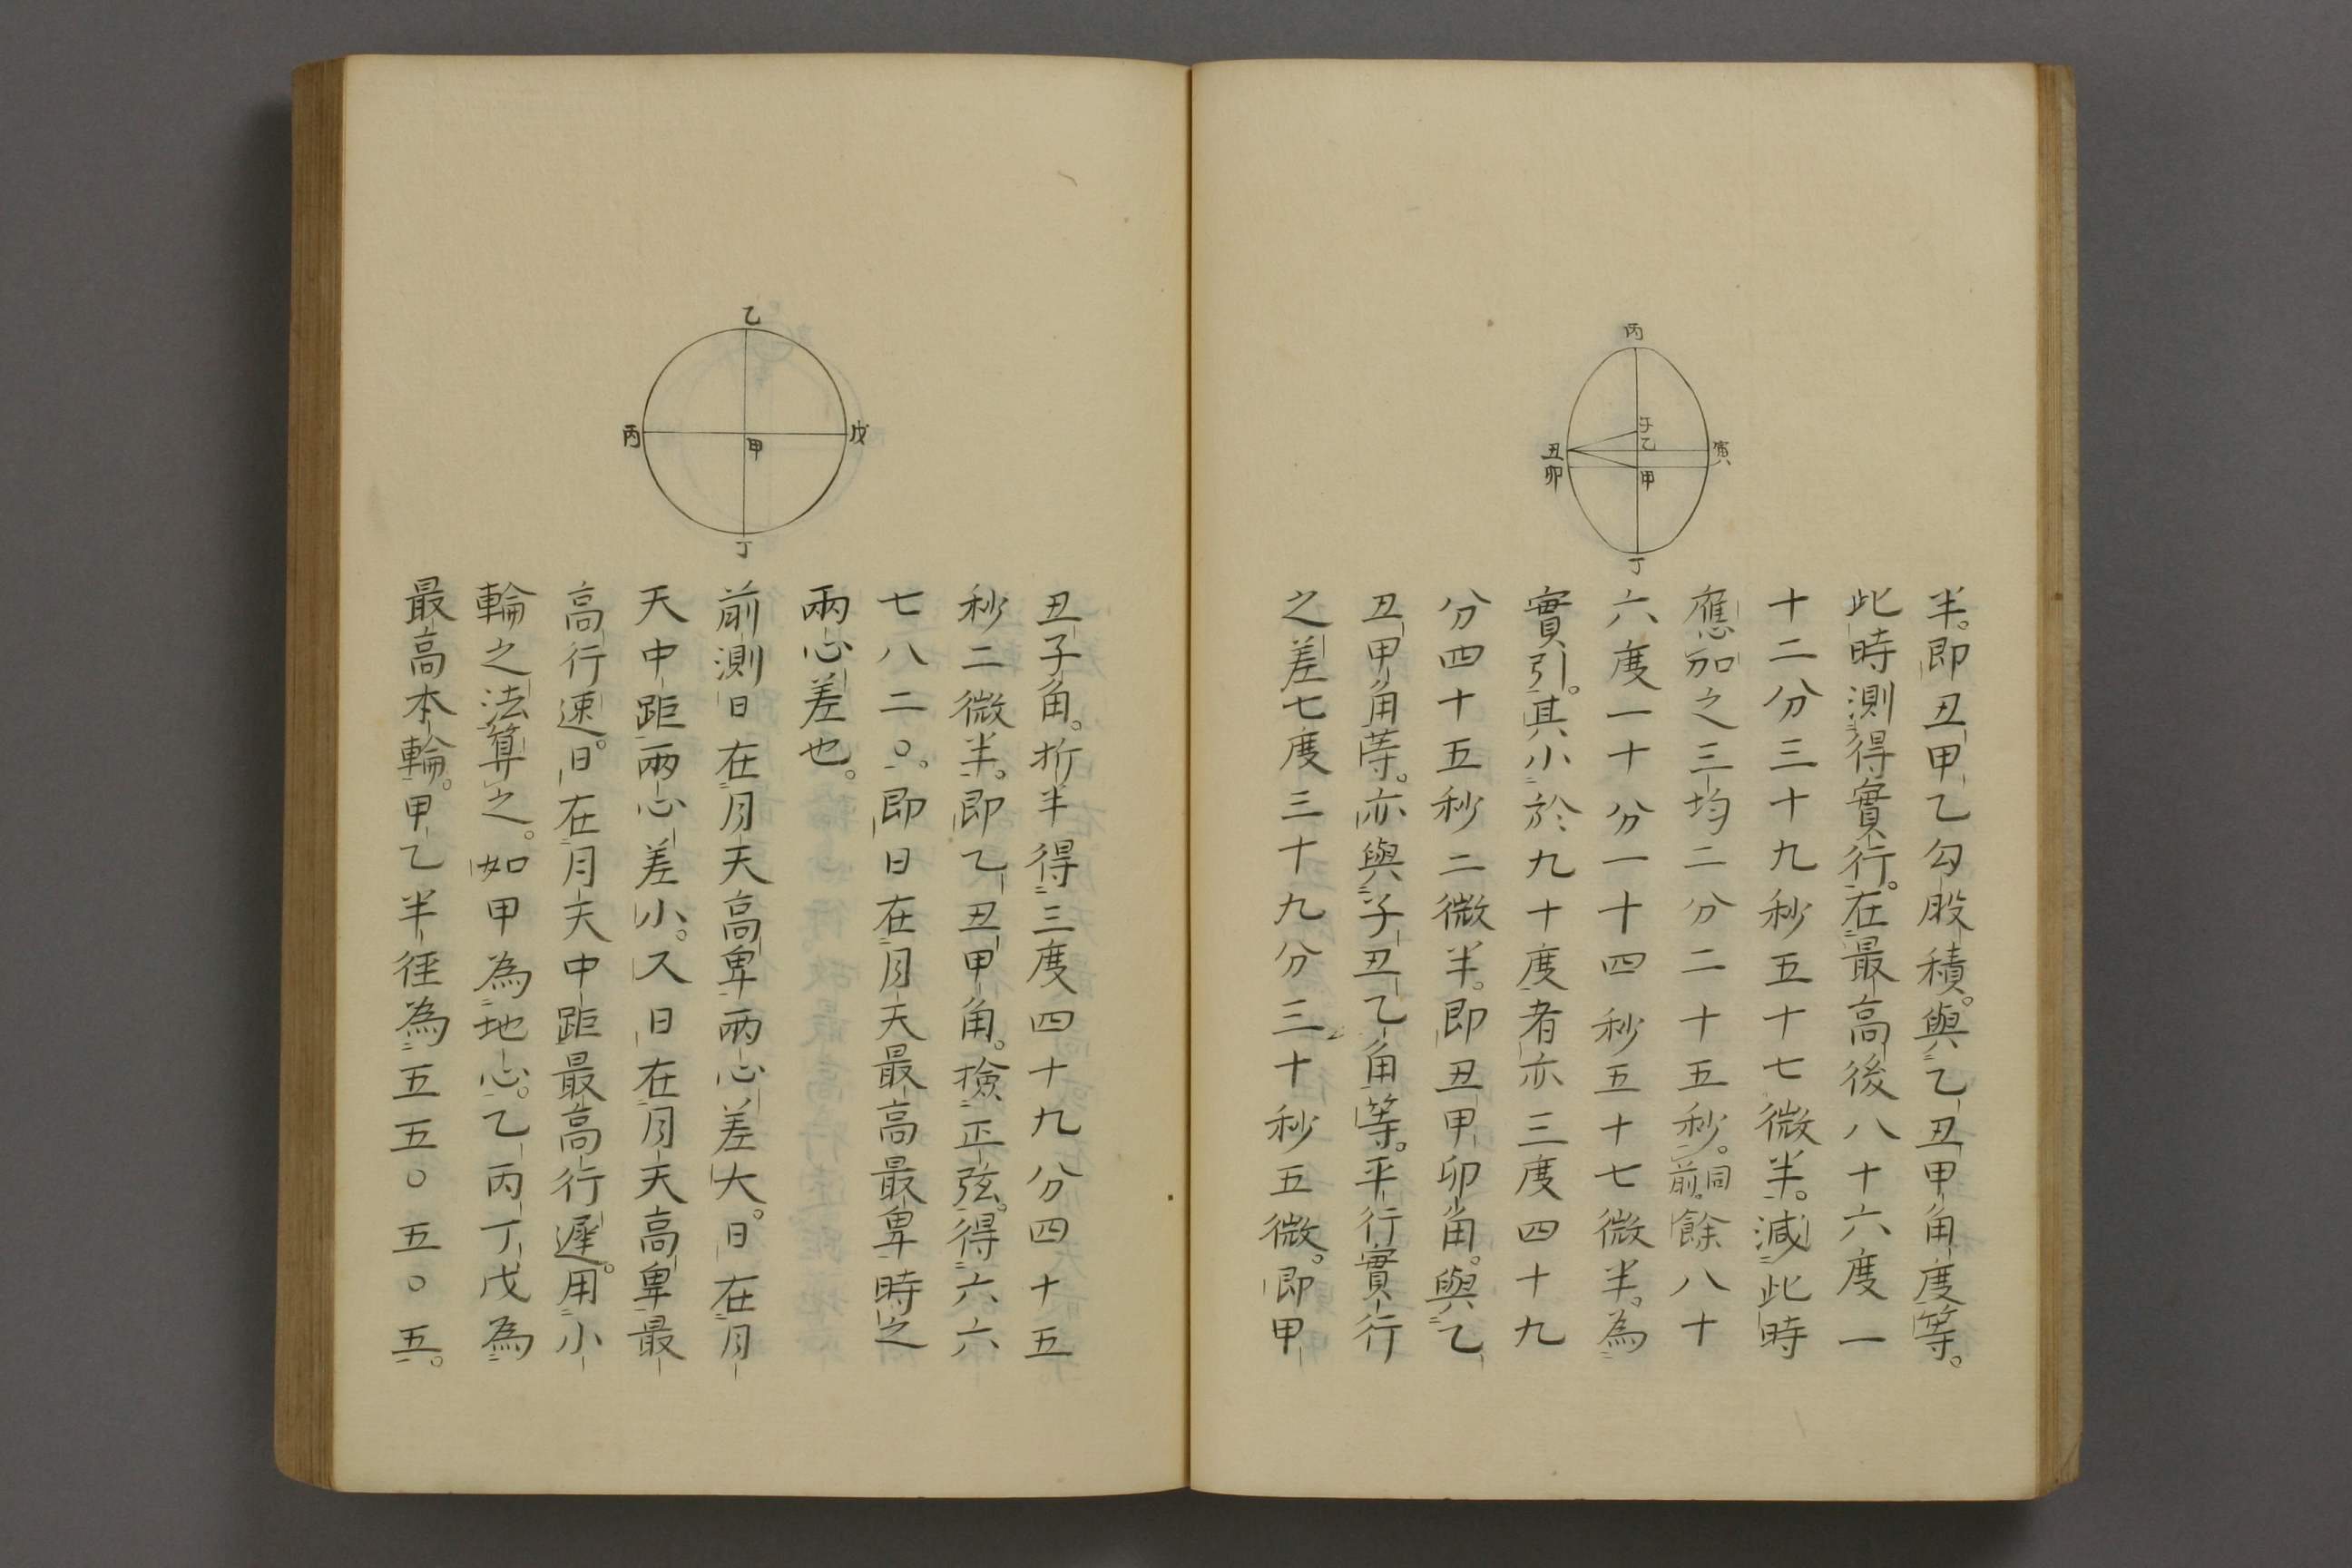 丙
子
乙
甲
寅
丑
卯
丁
半。即丑甲乙勾股積。與乙丑甲角度等。
此時測得實行。在最高後八十六度一
十二分三十九秒五十七微半。減此時
應加之三均二分二十五秒。同前。餘八十
六度一十分一十四秒五十七微半。為
實引。其小於九十度者亦三度四十九
分四十五秒二微半。即丑甲卯角。與乙
丑甲角等。亦與子丑乙角等。平行實行
之差七度三十九分三十秒五微。即甲
乙
丙
甲
戊
丁
丑子角。折半得三度四十九分四十五
秒二微半。即乙丑甲角。撿正弦。得六六
七八二〇。即日在月天最高最卑時之
兩心差也。
前測日在月天高卑兩心差大。日在月
天中距兩心差小。又日在月天高卑最
高行速。日在月天中距最高行遲。用小
輪之法算之。如甲為地心。乙丙丁戊為
最高本輪。甲乙半徑為五五〇五〇五。